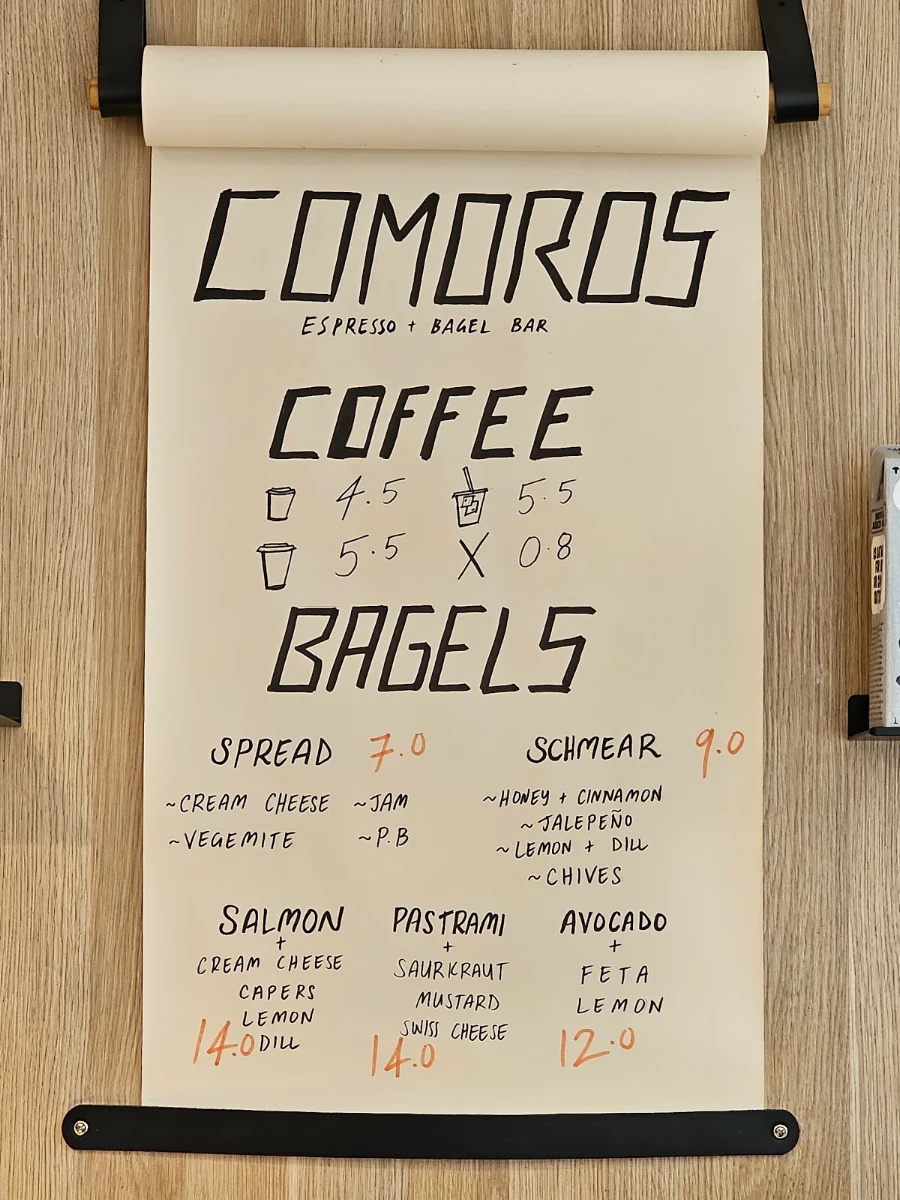 COMOROS
ESPRESSO + BAGEL BAR
COFFEE
4.5 5.5
5.5 X 0.8
BAGELS
SPREAD 7.0
~CREAM CHEESE ~JAM
~VEGEMITE ~P.B
SCHMEAR 9.0
~HONEY + CINNAMON
~JALEPEÑO
~LEMON + DILL
~CHIVES
SALMON
+
CREAM CHEESE
CAPERS
LEMON
14.0 DILL
PASTRAMI
+
SAURKRAUT
MUSTARD
SWISS CHEESE
14.0
AVOCADO
+
FETA
LEMON
12.0